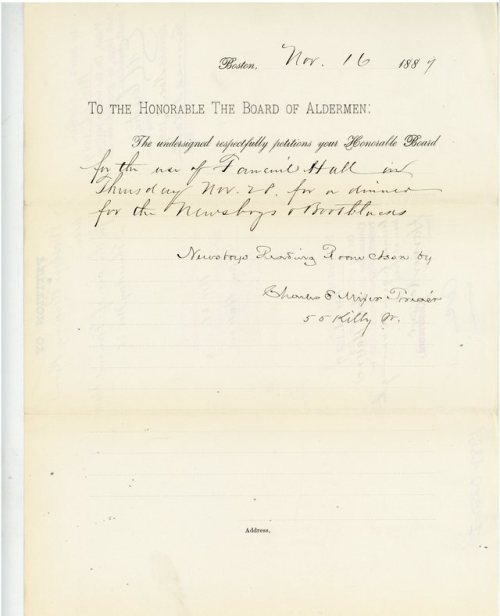 Boston, Nov. 16 1889
To the Honorable The Board of Aldermen:
The undersigned respectfully petitions your Honorable Board
for the use of Faneuil Hall on
Thursday Nov. 28. for a dinner
for the Newsboys & Bootblacks
Newsboys Reading Room Assn by
Charles E
50 Kilby St.
Address,